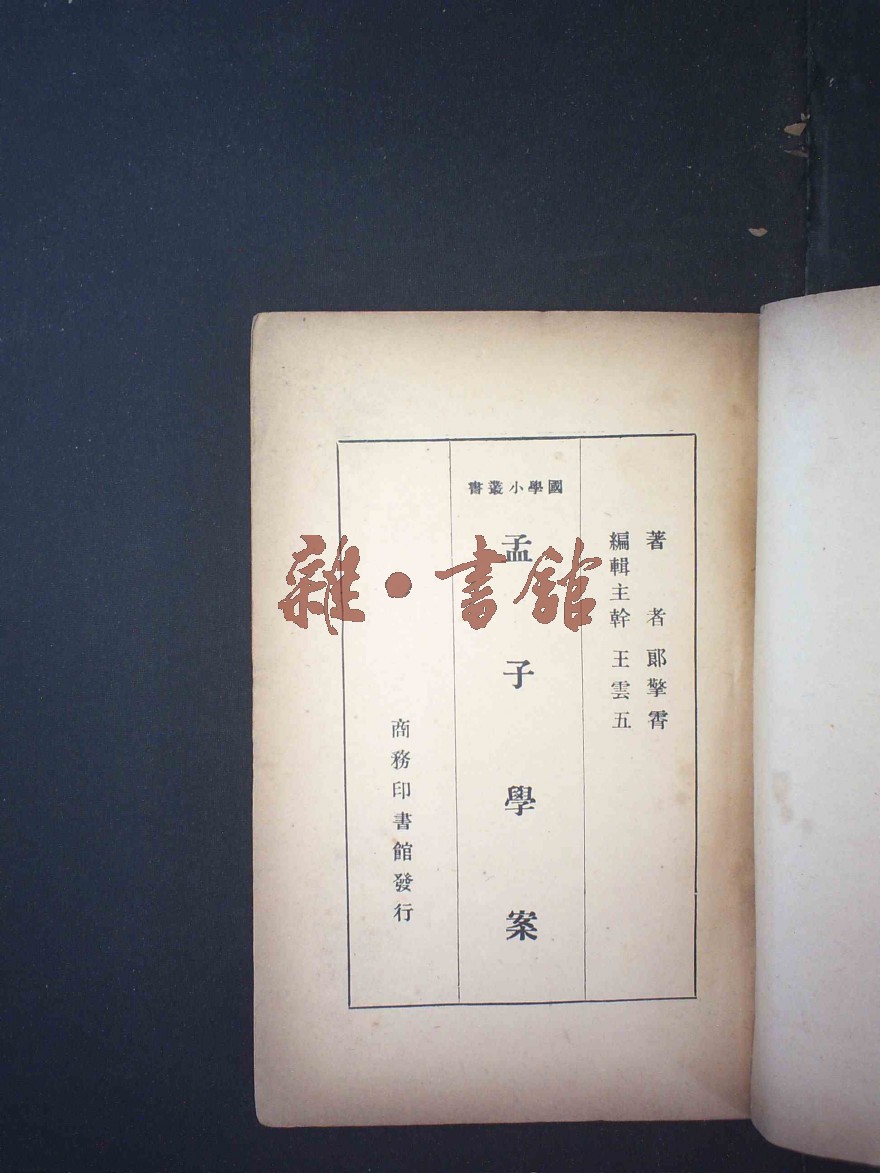 著者 郎擎霄
編輯主幹 王雲五
國學小叢書
孟子學案
商務印書館發行
雜·書館